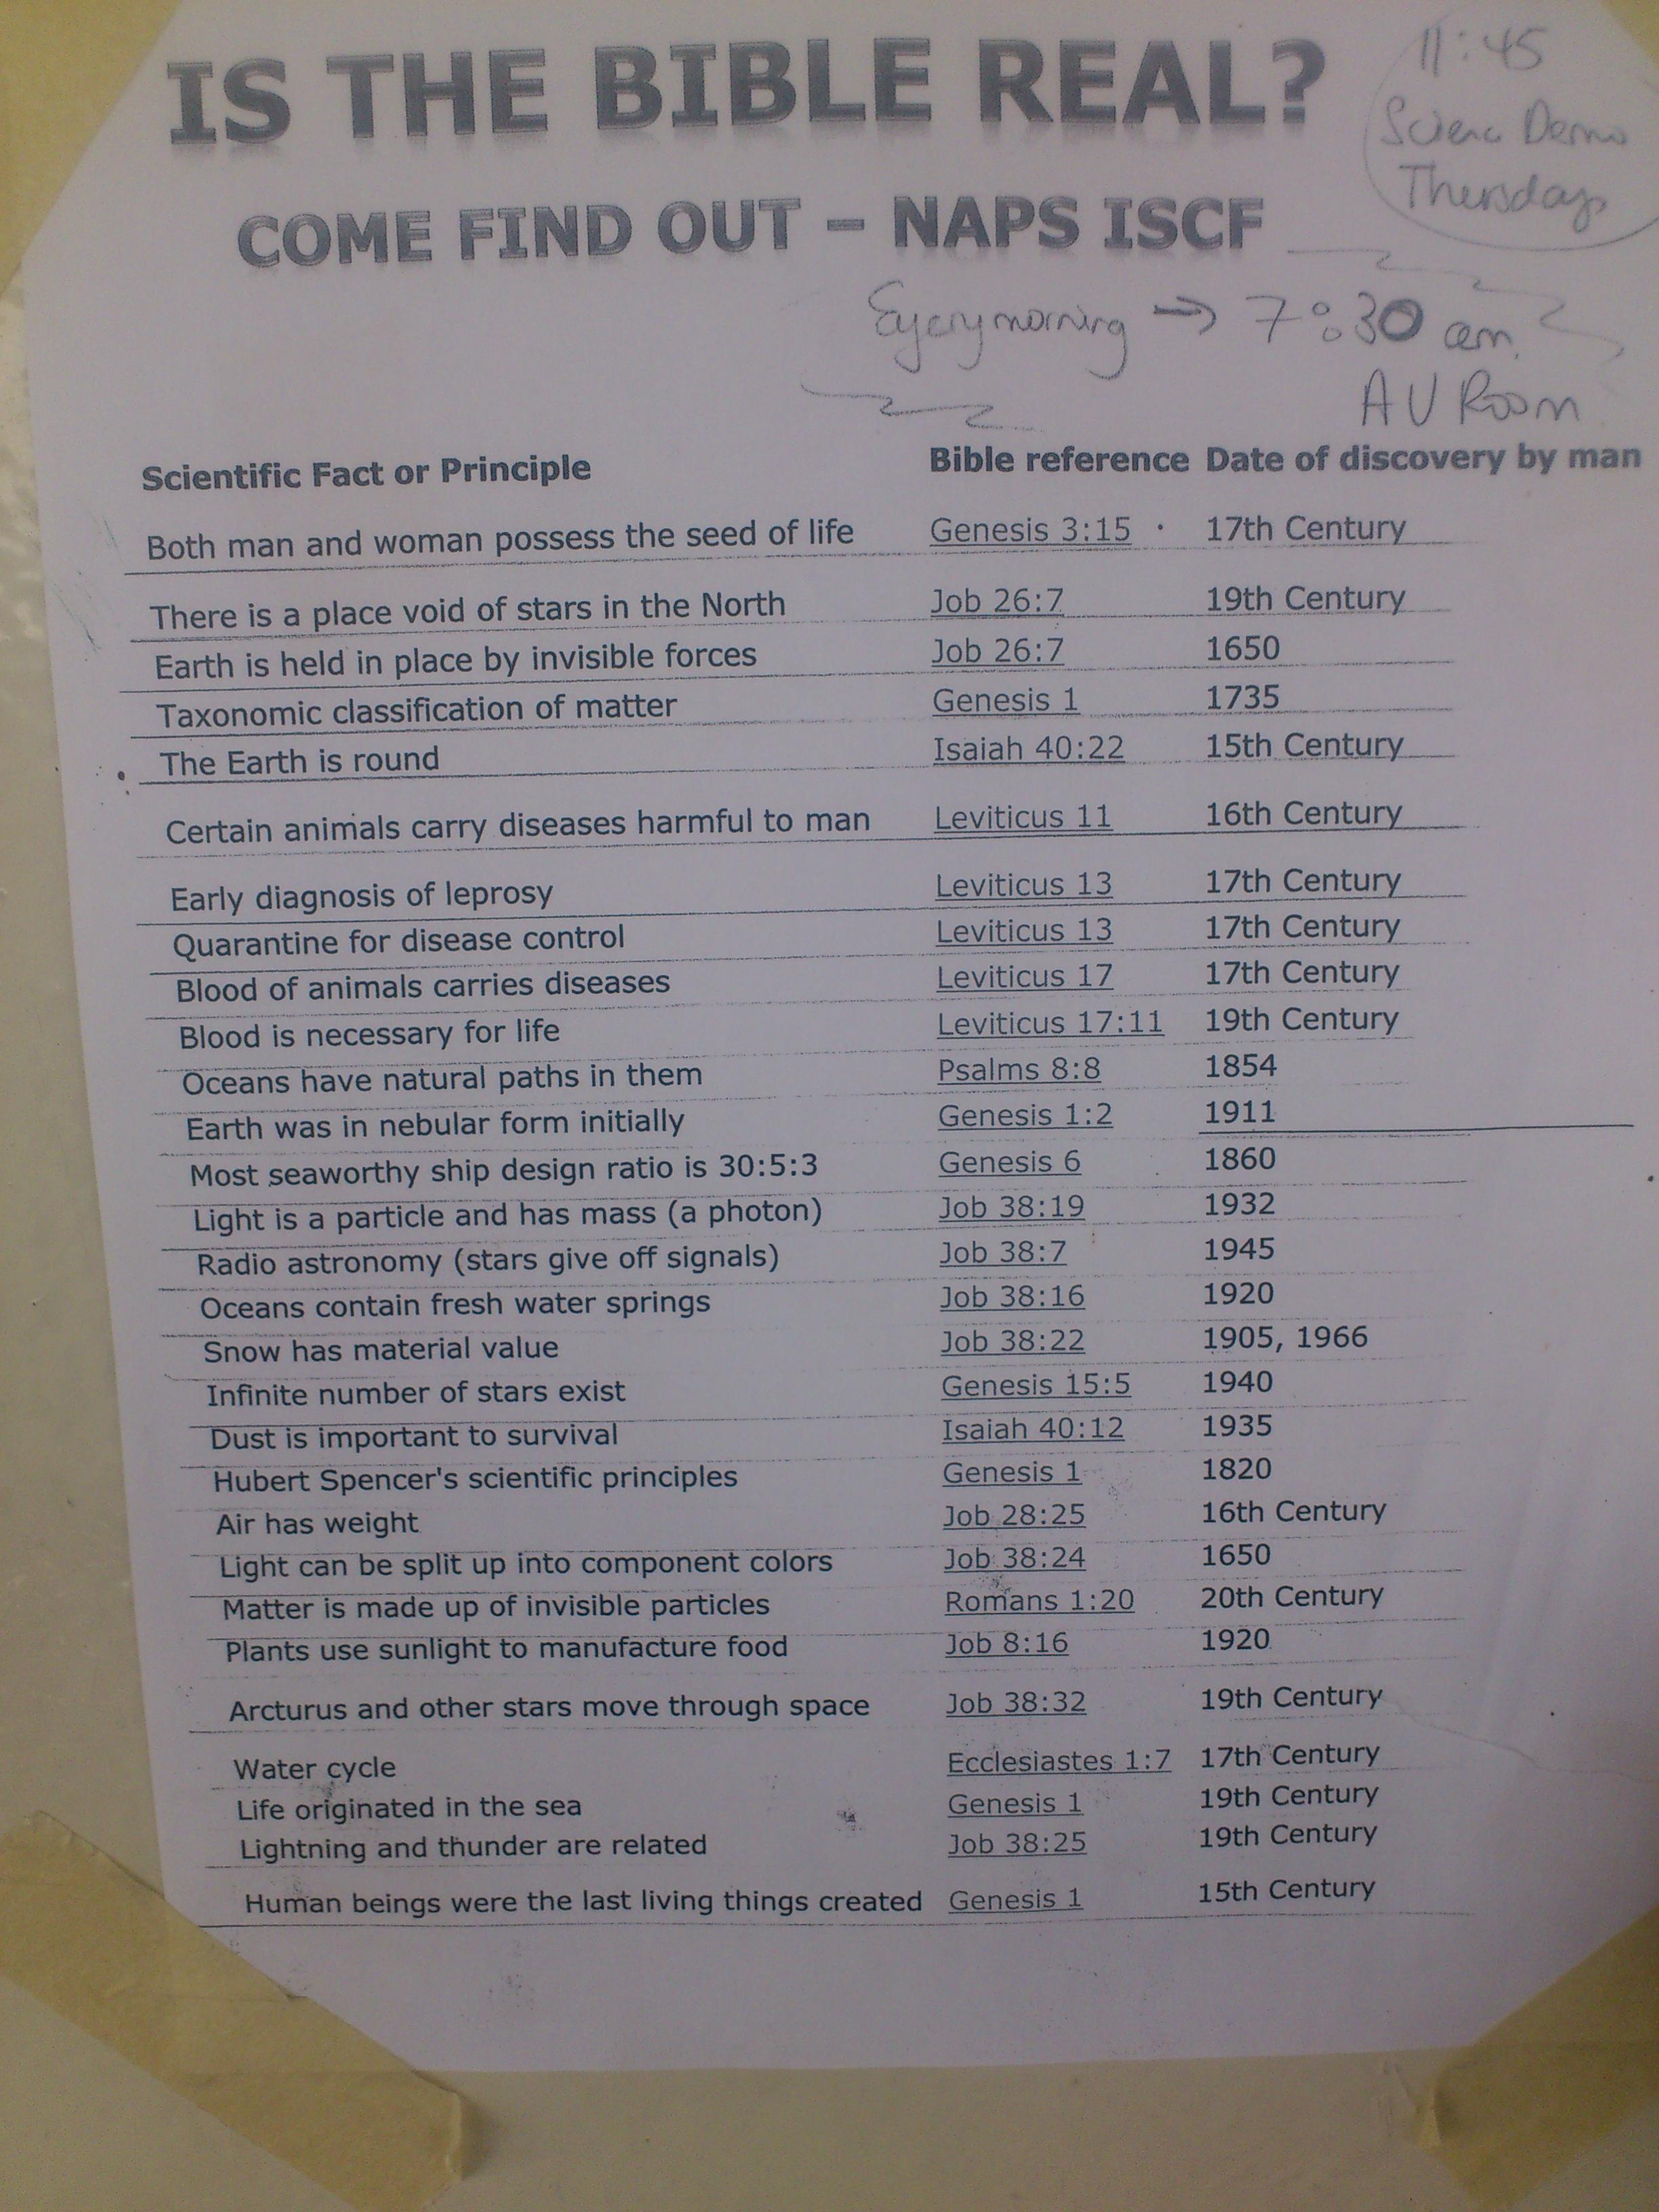 IS THE BIBLE REAL?
11:45
Scienc Demo
Thersday
COME FIND OUT – NAPS ISCF
Everymorning → 7:30 am.
AV Room
Scientific Fact or Principle Bible reference Date of discovery by man
Both man and woman possess the seed of life Genesis 3:15 17th Century
There is a place void of stars in the North Job 26:7 19th Century
Earth is held in place by invisible forces Job 26:7 1650
Taxonomic classification of matter Genesis 1 1735
The Earth is round Isaiah 40:22 15th Century
Certain animals carry diseases harmful to man Leviticus 11 16th Century
Early diagnosis of leprosy Leviticus 13 17th Century
Quarantine for disease control Leviticus 13 17th Century
Blood of animals carries diseases Leviticus 17 17th Century
Blood is necessary for life Leviticus 17:11 19th Century
Oceans have natural paths in them Psalms 8:8 1854
Earth was in nebular form initially Genesis 1:2 1911
Most seaworthy ship design ratio is 30:5:3 Genesis 6 1860
Light is a particle and has mass (a photon) Job 38:19 1932
Radio astronomy (stars give off signals) Job 38:7 1945
Oceans contain fresh water springs Job 38:16 1920
Snow has material value Job 38:22 1905, 1966
Infinite number of stars exist Genesis 15:5 1940
Dust is important to survival Isaiah 40:12 1935
Hubert Spencer's scientific principles Genesis 1 1820
Air has weight Job 28:25 16th Century
Light can be split up into component colors Job 38:24 1650
Matter is made up of invisible particles Romans 1:20 20th Century
Plants use sunlight to manufacture food Job 8:16 1920
Arcturus and other stars move through space Job 38:32 19th Century
Water cycle Ecclesiastes 1:7 17th Century
Life originated in the sea Genesis 1 19th Century
Lightning and thunder are related Job 38:25 19th Century
Human beings were the last living things created Genesis 1 15th Century